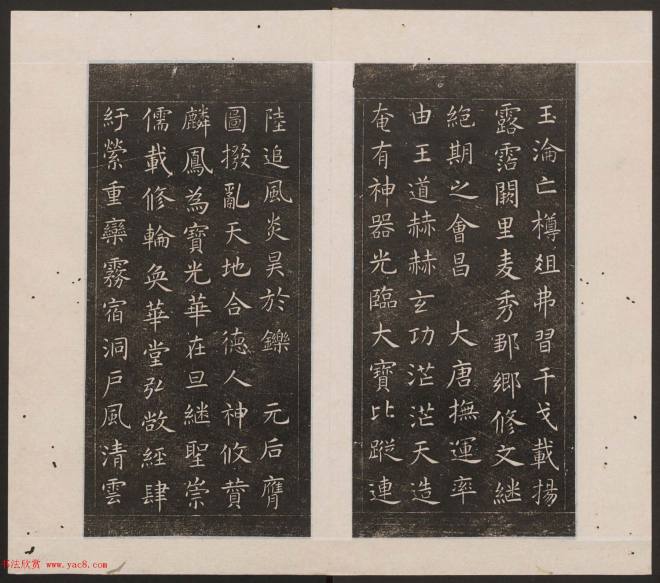 玉淪亡樽俎弗習干戈載揚
露霑闕里麦秀鄒鄉修文継
絶期之會昌 大唐撫運率
由王道赫赫玄功茫茫天造
奄有神器光臨大寶比蹤連
陸追風炎昊於鑠 元后膺
圖撥亂天地合德人神攸賛
麟鳳為寶光華在旦継聖崇
儒載修輪奐華堂弘敞經肆
紆縈重欒霧宿洞戶風清雲
书法欣赏 www.yac8.com